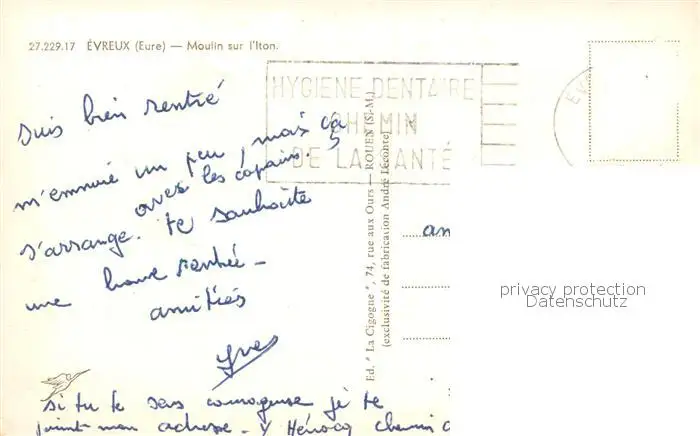 27.229.17 ÉVREUX (Eure) — Moulin sur l'Iton.
HYGIENE DENTAIRE
CHEMIN
DE LA SANTÉ
suis bien rentré
m'ennuie un peu, mais ça
avec les copains.
s'arrange. te souhaite
une bonne rentrée -
amitiés
Yves
si tu te sens courageuse je te
joint mon adresse - Y Hérocq chemin
Ed. "La Cigogne", 74, rue aux Ours — ROUEN (S.-M.)
(exclusivité de fabrication André Leconte)
an
privacy protection
Datenschutz